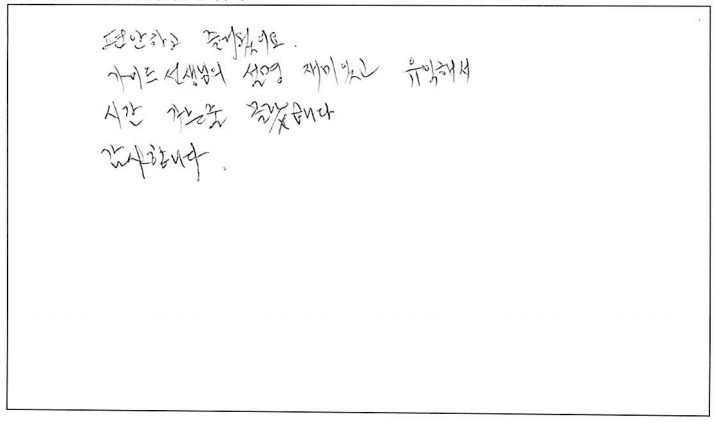 편안하고 즐거웠어요.
가이드 선생님의 설명 재미있고 유익해서
시간 가는줄 몰랐습니다
감사합니다.